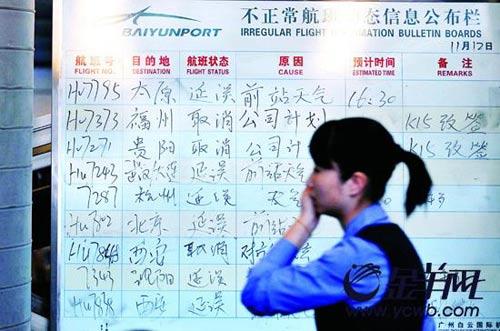 不正常航班动态信息公布栏
BAIYUNPORT IRREGULAR FLIGHT INFORMATION BULLETIN BOARDS
11月17日
航班号 目的地 航班状态 原因 预计时间 备注
FLIGHT NO. DESTINATION FLIGHT STATUS CAUSE ESTIMATED TIME REMARKS
HU7795 太原 延误 前站天气 16:30
HU7373 福州 取消 公司计划 K15改签
HU7271 贵阳 取消 公司计 K15改签
HU7243 延误 前站天气
7287 杭州 延误 天气
HU 802 北京 延误 前站
西安 取消
7343 延误
西安 延误
金羊网
www.ycwb.com
广州白云国际